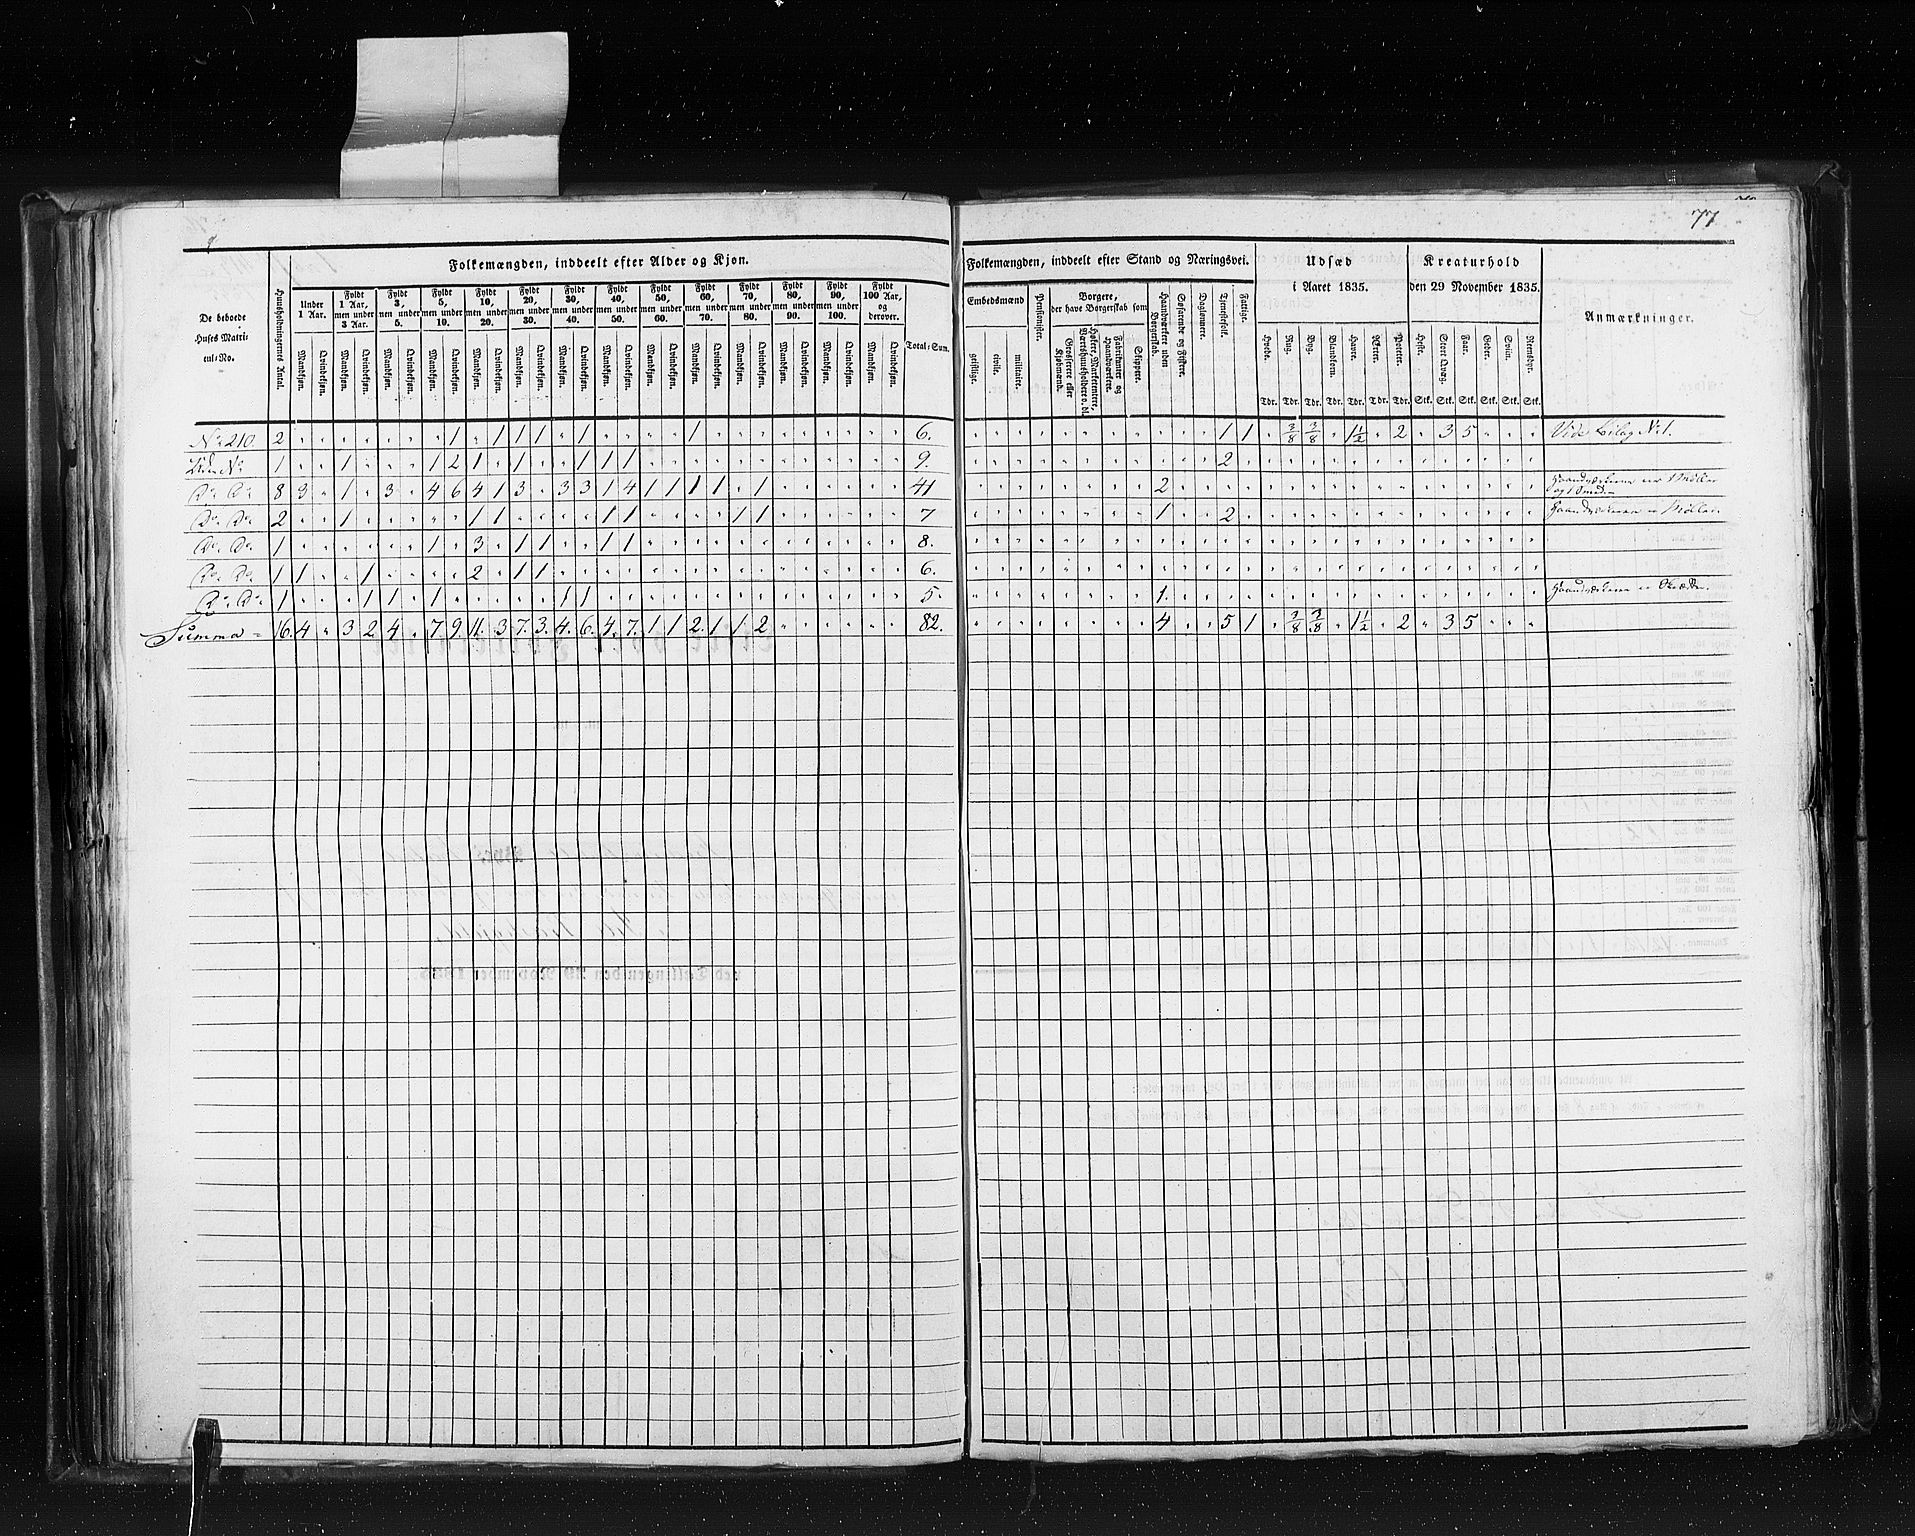 77
Folkemængden, inddeelt efter Alder og Kjøn.
De beboede Huses Matricul-No.
Huusholdningernes Antal.
Under 1 Aar.
Fyldt 1 Aar, men under 3 Aar.
Fyldt 3, men under 5.
Fyldt 5, men under 10.
Fyldt 10, men under 20.
Fyldt 20, men under 30.
Fyldt 30, men under 40.
Fyldt 40, men under 50.
Fyldt 50, men under 60.
Fyldt 60, men under 70.
Fyldt 70, men under 80.
Fyldt 80, men under 90.
Fyldt 90, men under 100.
Fyldt 100 Aar, og derover.
Total-Sum.
Mandkjøn. Qvindekjøn. Mandkjøn. Qvindekjøn. Mandkjøn. Qvindekjøn. Mandkjøn. Qvindekjøn. Mandkjøn. Qvindekjøn. Mandkjøn. Qvindekjøn. Mandkjøn. Qvindekjøn. Mandkjøn. Qvindekjøn. Mandkjøn. Qvindekjøn. Mandkjøn. Qvindekjøn. Mandkjøn. Qvindekjøn. Mandkjøn. Qvindekjøn. Mandkjøn. Qvindekjøn. Mandkjøn. Qvindekjøn.
Folkemængden, inddeelt efter Stand og Næringsvei.
Embedsmænd
geistlige. civile. militaire.
Pensionister.
Borgere, der have Borgerskab som
Grosserere eller Kjøbmænd.
Høkere, Marketentere, Værtshuusholdere o. dl.
Fabrikanter og Haandværkere.
Skippere.
Haandværkere uden Borgerskab.
Søfarende og Fiskere.
Daglønnere.
Tjenestefolk.
Fattige.
Udsæd i Aaret 1835.
Hvede. Rug. Byg. Blandkorn. Havre. Erter. Poteter.
Tdr. Tdr. Tdr. Tdr. Tdr. Tdr. Tdr.
Kreaturhold den 29 November 1835.
Heste. Stort Qvæg. Faar. Geder. Sviin. Reensdyr.
Stk. Stk. Stk. Stk. Stk. Stk.
Anmærkninger.
No 210 2 1 1 1 1 1 1 6. 1 1 3/8 3/8 1 1/2 2 3 5 Vide Bilag No 1.
Uden No 1 1 1 2 1 1 1 1 1 9. 2
Do Do 8 3 1 3 4 6 4 1 3 3 3 1 4 1 1 1 1 1 41 2
Do Do 2 1 1 1 1 1 1 1 7 1 2
Do Do 1 1 3 1 1 1 1 8.
Do Do 1 1 1 2 1 1 6.
Do Do 1 1 1 1 1 1 5. 1
Summa 16. 4 3 2. 4 7. 9. 11. 3 7. 3. 4. 6. 4. 7. 1 1 2. 1 1 2 82. 4 5 1 3/8 3/8 1 1/2 2 3 5